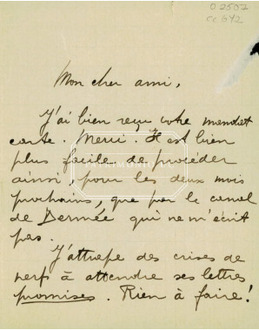 D 2502
CL 672
Mon cher ami,
J'ai bien reçu votre mandat
carte. Merci. Il est bien
plus facile de procéder
ainsi, pour les deux mois
prochains, que par le canal
de Dermée qui ne m'écrit
pas.
J'attrape des crises de
nerf à attendre ses lettres
promises. Rien à faire!